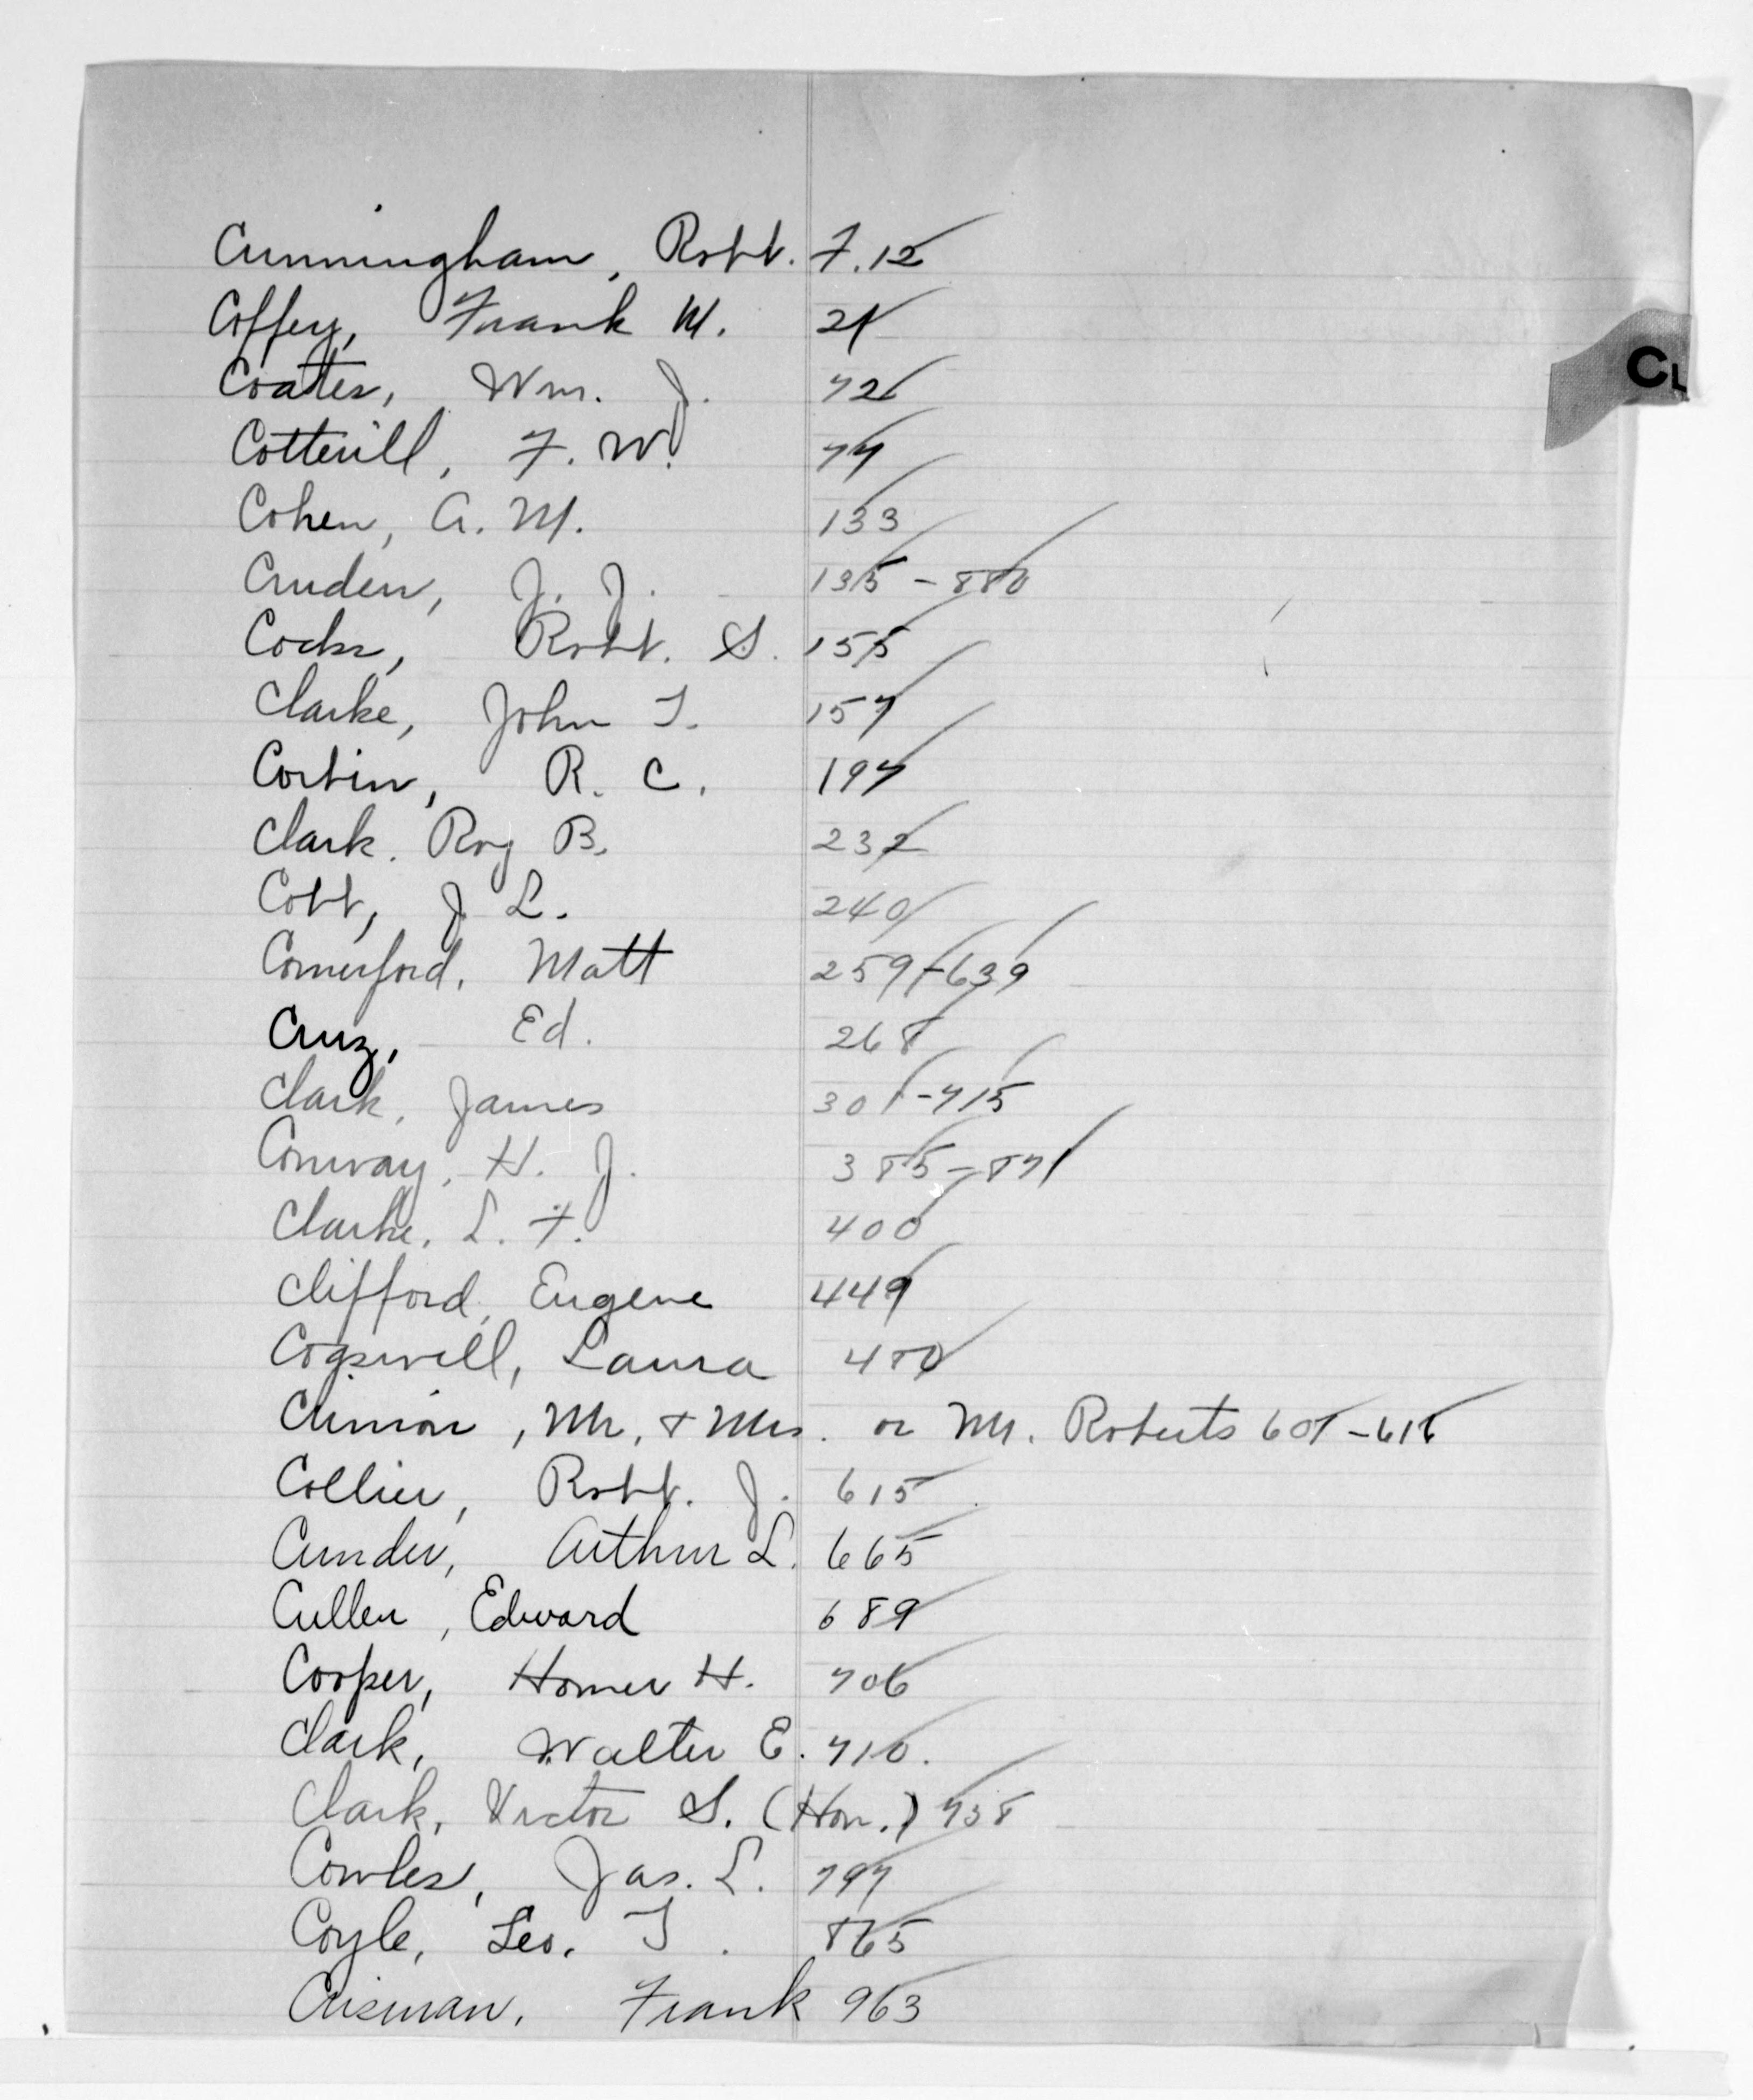 Cunningham, Robt. F.12
CL
Coffey, Frank M. 21
Coates, Wm. J. 726
Cotterill, F. W. 77
Cohen, A. M. 133
Cruden, J. J. 135 - 880
Cocks, Robt. S. 155
Clarke, John T. 157
Corbin, R. C. 197
Clark. Roy B. 232
Cobb, J L. 240
Comerford, Matt 259-639
Cruz, Ed. 268
Clark, James 301-715
Conway, H. J. 385-871
Clarke, L. F. 400
Clifford, Eugene 449
Cogswell, Laura 480
, Mr. & Mrs. or Mr. Roberts 601-616
Collier, Robt. J. 615
Cunder, Arthur L. 665
Cullen, Edward 689
Cooper, Homer H. 706
Clark, Walter E. 710.
Clark, Victor S. (Hon.) 738
Cowles, Jas. L. 797
Coyle, Leo. T. 865
Crisman, Frank 963